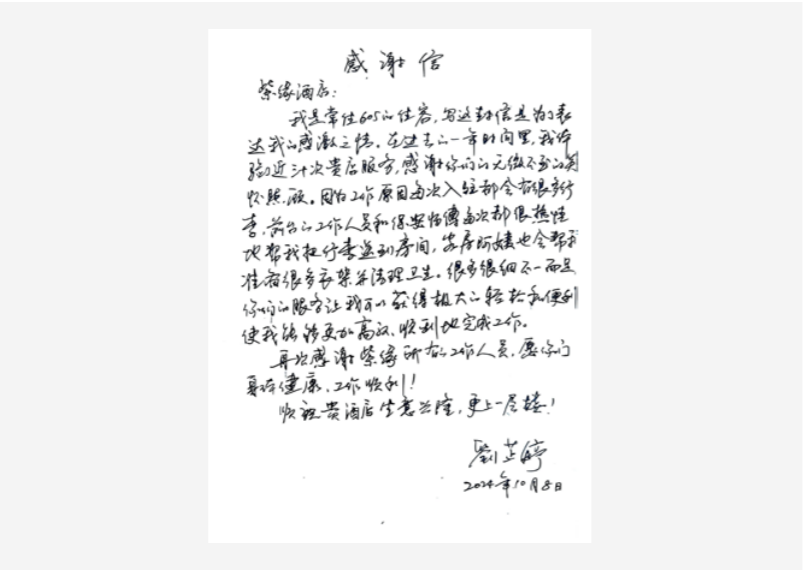 感谢信
紫缘酒店：
我是常住605的住客，写这封信是为了表
达我的感激之情。在过去的一年时间里，我体
验近三十次贵店服务，感谢你们的无微不至的关
怀照顾。因为工作原因每次入驻都会有很多行
李，前台的工作人员和保安师傅每次都很热情
地帮我把行李送到房间，客房阿姨也会帮我
准备很多衣架并清理卫生。很多很细不一而足
你们的服务让我可以获得极大的轻松和便利
使我能够更加高效、顺利地完成工作。
再次感谢紫缘所有的工作人员，愿你们
身体健康、工作顺利！
顺祝贵酒店生意兴隆，更上一层楼！
劉芷婷
2024年10月8日